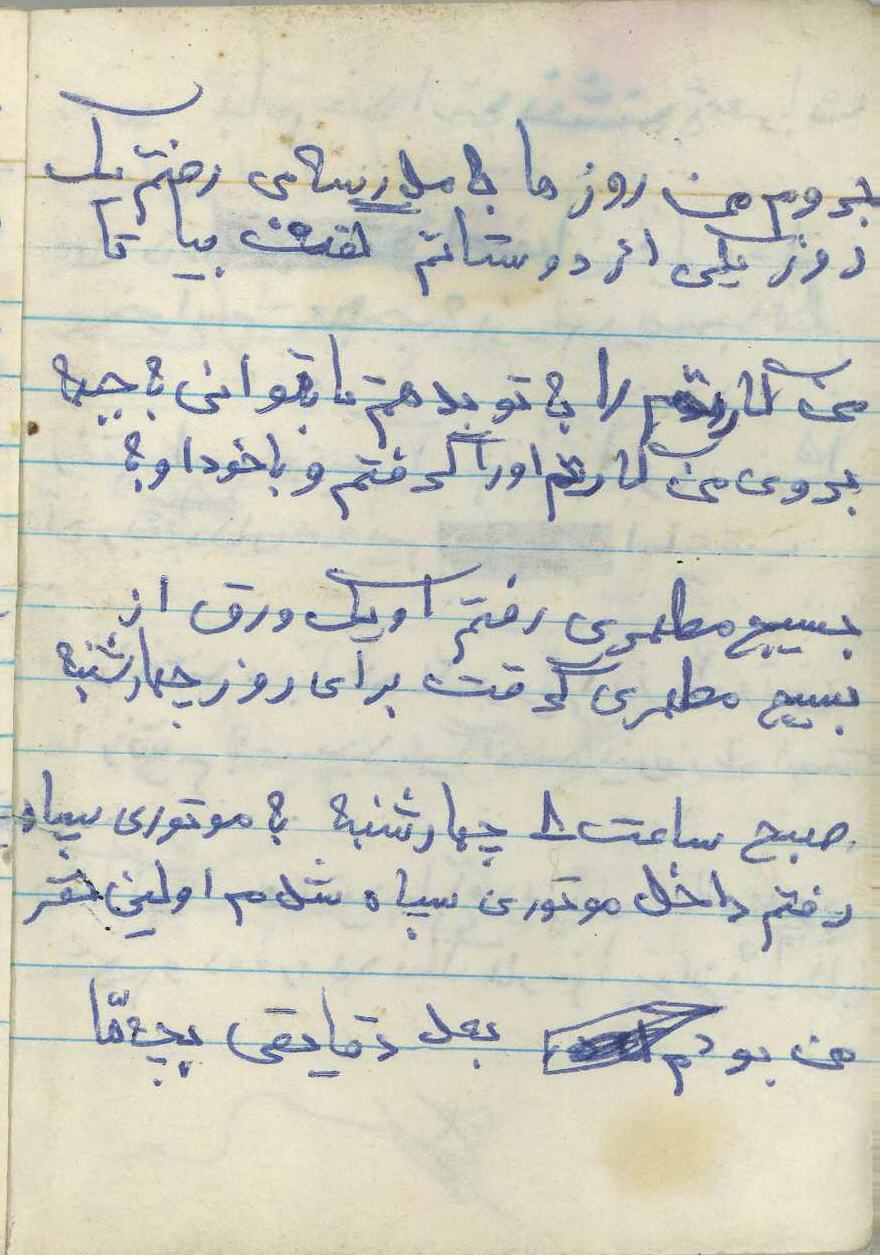 بروم من روز ها به مدرسه می رفتم یک
روز یکی از دوستانم گفت بیا تا
من کارتم را به تو بدهم تا بتوانی به جبهه
بروی من کارتم او را گرفتم و با خود او به
بسیج مطهری رفتم او یک ورق از
بسیج مطهری گرفت برای روز چهارشنبه
صبح ساعت ۸ چهارشنبه به موتوری سپاه
رفتم داخل موتوری سپاه شدم اولین نفر
من بودم بعد دقایقی بچه ها